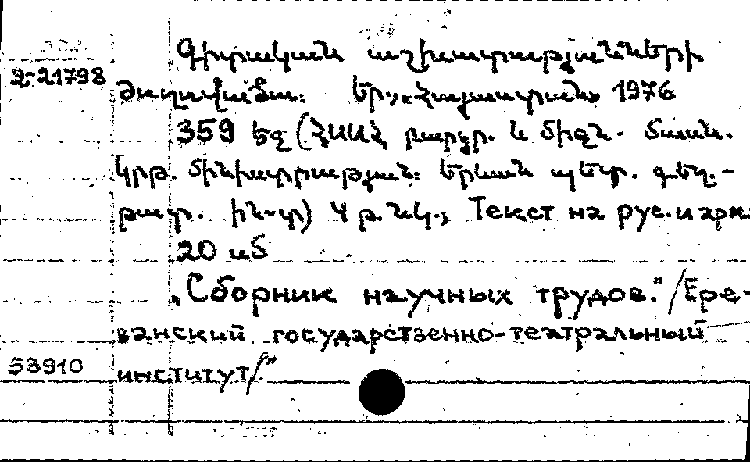 Գիտական աշխատությունների
2-21798 ժողովածու: Եր., «Հայաստան» 1976
359 եզ (ՀՍՍՀ բարձր. և միջն. մասն.
կրթ. մինիստրություն: Երևան պետ. գեղ.-
թատ. ին-տ) Կ թ. նկ., Текст на рус. и арм.
20 սմ
„Сборник научных трудов." /Ере-
ванский государственно-театральный
53910 институт/"